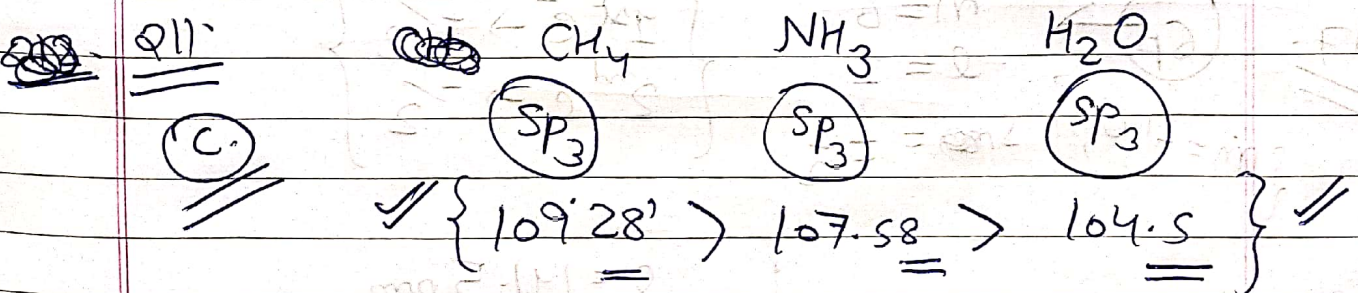 Q11. CH4 NH3 H2O
C. Sp3 Sp3 Sp3
{ 109°28' > 107.58 > 104.5 }